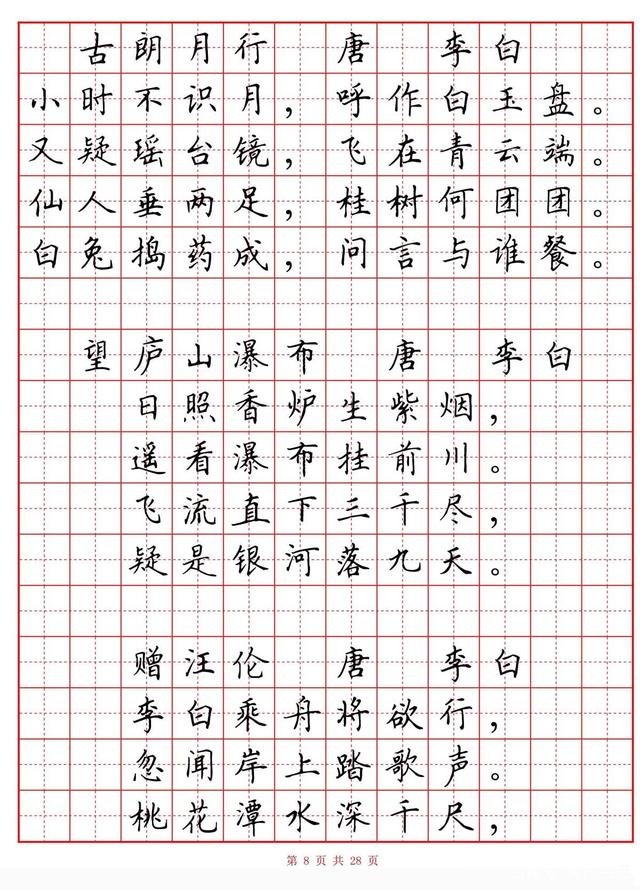 古朗月行 唐 李白
小时不识月，呼作白玉盘。
又疑瑶台镜，飞在青云端。
仙人垂两足，桂树何团团。
白兔捣药成，问言与谁餐。
望庐山瀑布 唐 李白
日照香炉生紫烟，
遥看瀑布挂前川。
飞流直下三千尽，
疑是银河落九天。
赠汪伦 唐 李白
李白乘舟将欲行，
忽闻岸上踏歌声。
桃花潭水深千尺，
第 8 页 共 28 页